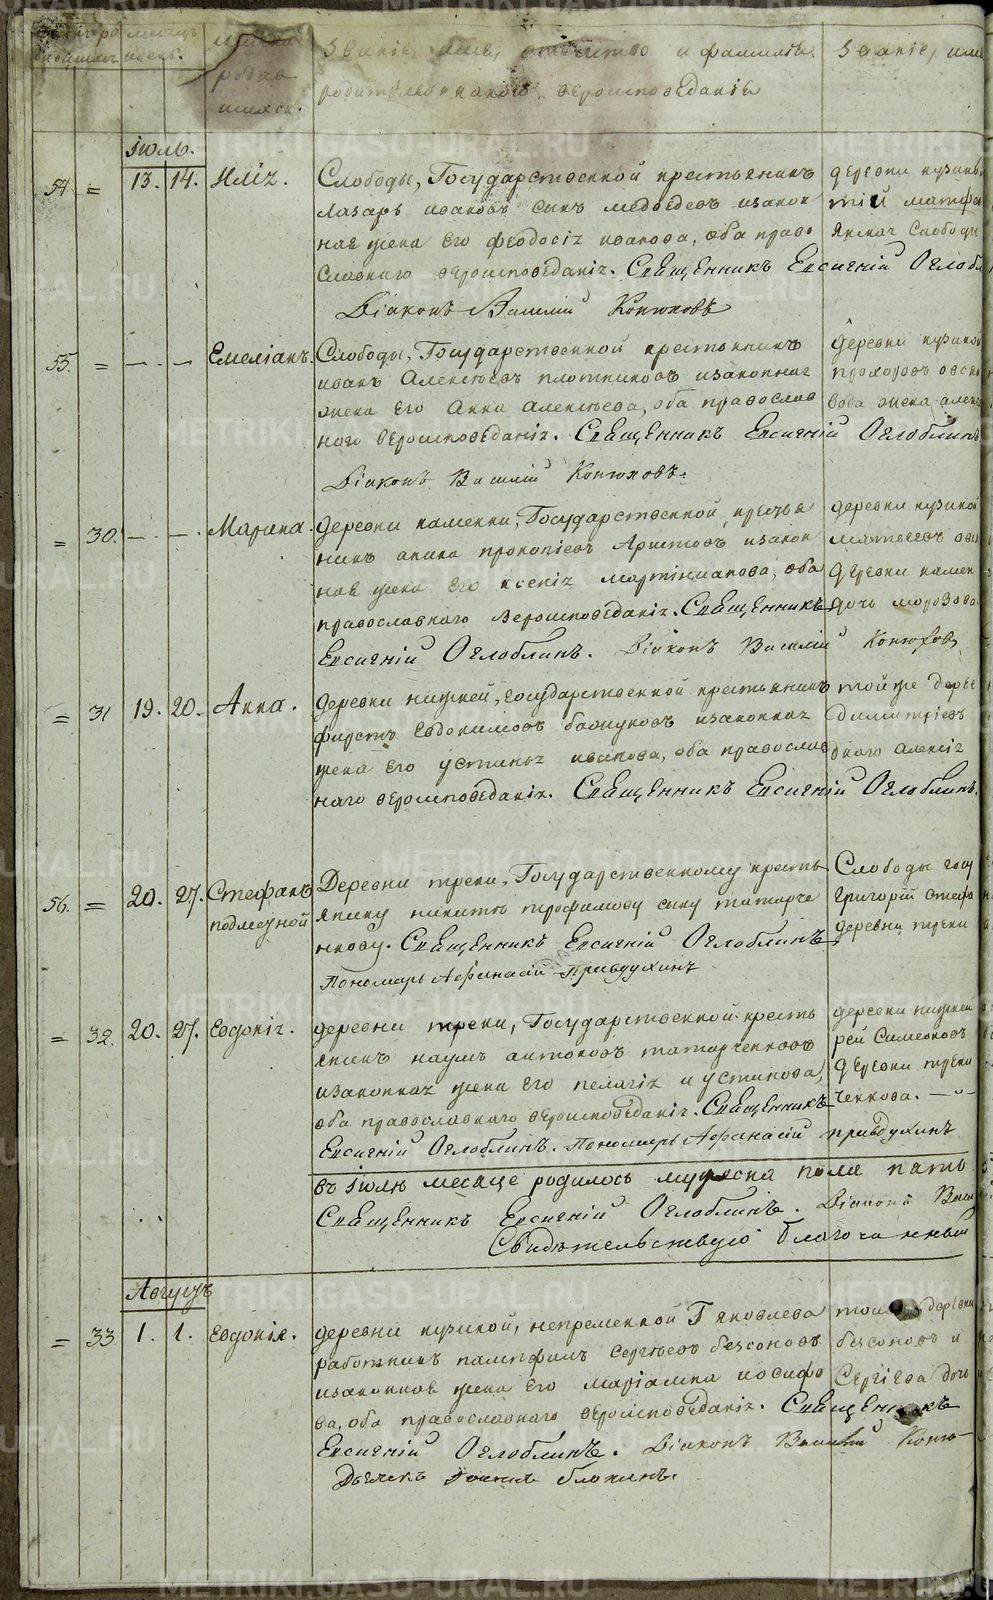 Званіе, имя, отчество и фамилія
родителей и какого вероисповеданія
Званіе, имя
имена
родив
шихся.
Іюль.
54 = 13. 14. Иліꙗ.
Слободы, Государственной крестьянинъ
Лазарь ивановъ сынъ медведевъ изакон
ная жена Его феодосіꙗ иванова, оба право
славнаго вероисповеданіꙗ. Священникъ Евсигній Оглобл
Діаконъ Василій Конюховъ
деревни кузинк
тій матфе
Янская Слободы
55. = — — Емеліанъ.
Слободы, Государственной крестьянинъ
иванъ Алексеевъ плотниковъ изаконнаꙗ
жена Его Анна Алексеева, оба православ
наго вероисповеданіꙗ. Священникъ Евсигній Оглоблинъ
Діаконъ Василій Конюховъ.
деревни кузиной
прохоровъ овсян
вова жена алекс
= 30. — — Марина.
деревни каменки, Государственной крестья
нинъ аника прокопіевъ Аристовъ, изакон
ная жена Его ксеніꙗ мартініанова, оба
православнаго вероисповеданіꙗ. Священникъ
Евсигній Оглоблинъ. Діаконъ Василій Конюховъ
деревни кузиной
матвеевъ овс
деревни камен
дочь морозова
= 31 19. 20. Анна.
деревни нижней, государственной крестьянинъ
фирсъ Евдокимовъ бажуковъ изаконнаꙗ
жена Его устиньꙗ иванова, оба православ
наго вероисповеданіꙗ. Священникъ Евсигній Оглоблинъ.
тойже дерев
димитріевъ
онаго алексіꙗ
56. = 20. 27. Стефанъ
подменной
Деревни треки, Государственному кресть
янину никите трофимову сыну татарче
нкову. Священникъ Евсигній Оглоблинъ
Пономарь Афанасій Привдухинъ
Слободы госу
григорій стефа
деревни треки
= 32. 20. 27. Евдокіꙗ.
деревни треки, Государственной кресть
янинъ наумъ антоновъ татарченковъ
изаконнаꙗ жена Его пелагіꙗ иустинова,
оба православнаго вероисповеданіꙗ. Священникъ
Евсигній Оглоблинъ. Пономарь Афанасій привдухинъ
деревни нижней
рей Симеоновъ
деревни треки
ченкова.
въ Іюле месяце родилось мужеска пола пять
Священникъ Евсигній Оглоблинъ. Діаконъ Васи
Свидетельствую благочинный
Августъ
= 33 1. 1. Евдокія.
деревни кузиной, непременной Г яковлева
работникъ памфилъ Сергеевъ безсоновъ
изаконная жена Его маріамна иосифо
ва, оба православнаго вероисповеданіꙗ. Священникъ
Евсигній Оглоблинъ. Діаконъ Василій Коню-
Дьячекъ Іоаннъ блохинъ.
той деревни
безсоновъ и
Сергіева дочь